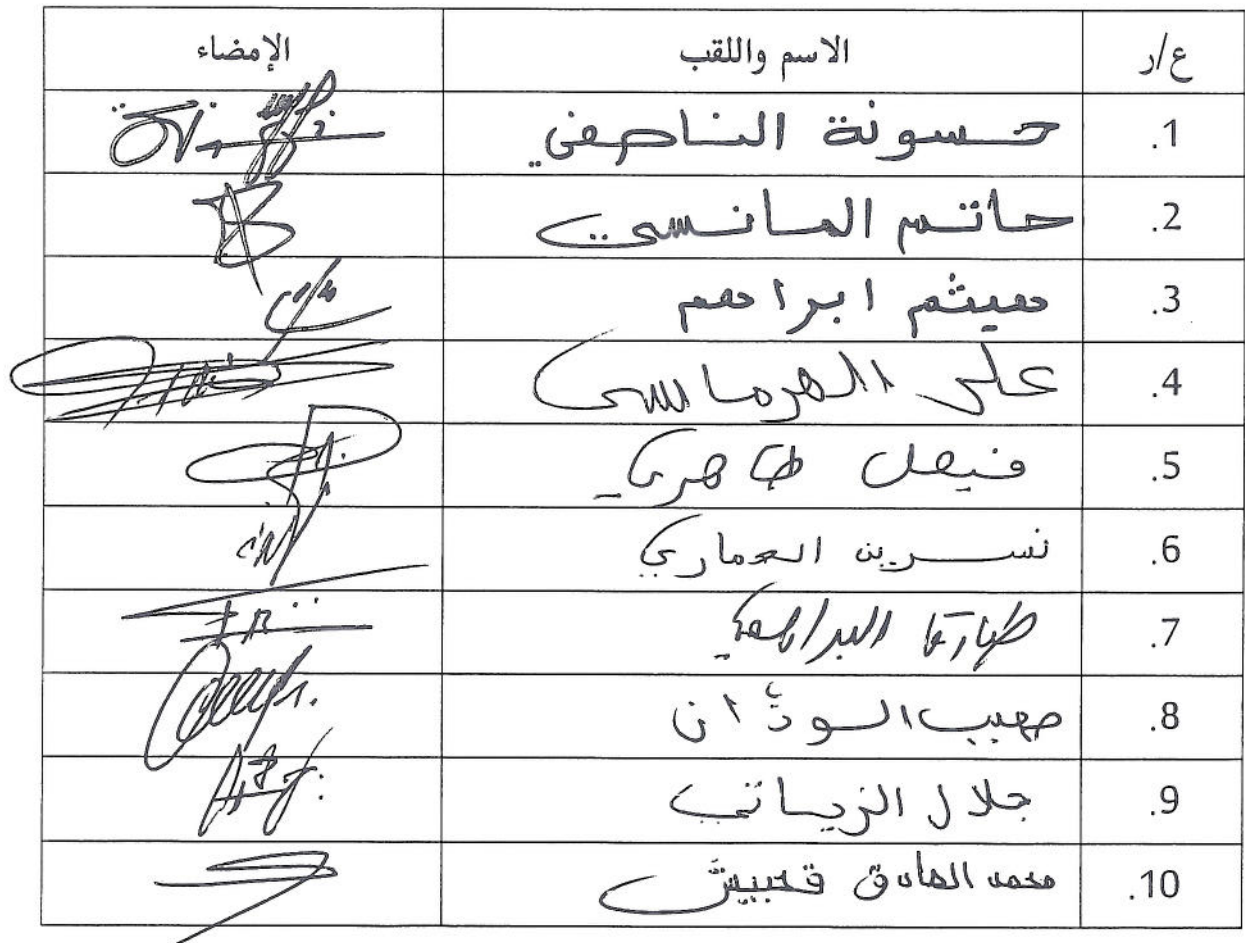 ع/ر الاسم واللقب الإمضاء
1. حسونة الناصفي
2. حاتم المانسي
3. هيثم ابراهم
4. علي الهرماسي
5. فيصل طاهري
6. نسرين العماري
7. طارق البراهمي
8. صهيب الوذان
9. جلال الزياتي
10. محمد الصادق قحبيش